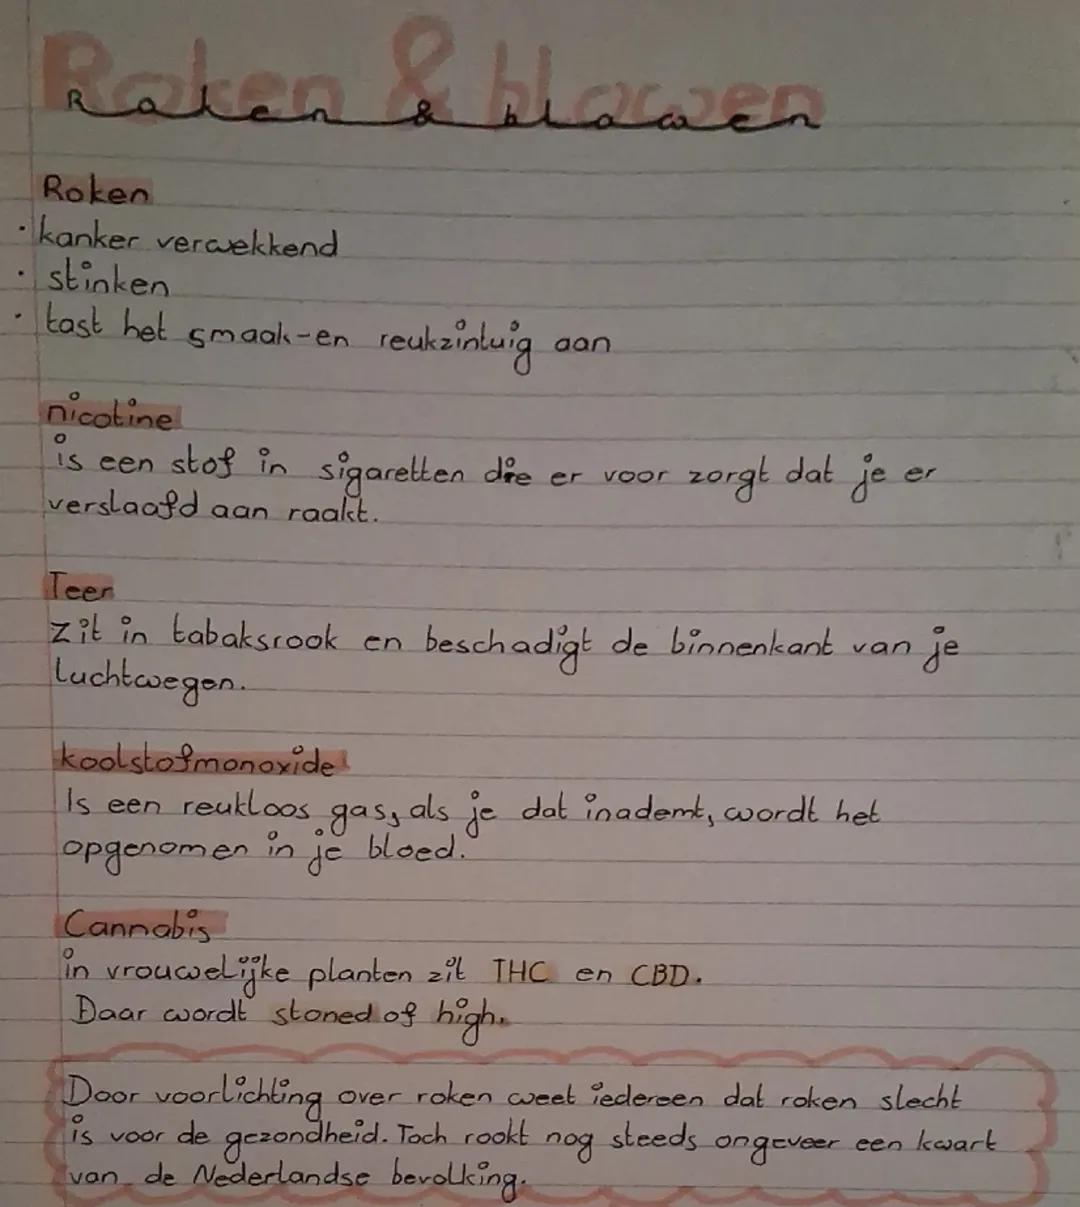 Roken & blowen
Roken
· kanker verwekkend
· stinken
· tast het smaak-en reukzintuig aan
nicotine
is een stof in sigaretten die er voor zorgt dat je er
verslaafd aan raakt.
Teer
zit in tabaksrook en beschadigt de binnenkant van je
luchtwegen.
koolstofmonoxide
Is een reukloos gas, als je dat inademt, wordt het
opgenomen in je bloed.
Cannabis
in vrouwelijke planten zit THC en CBD.
Daar wordt stoned of high.
Door voorlichting over roken weet iedereen dat roken slecht
is voor de gezondheid. Toch rookt nog steeds ongeveer een kwart
van de Nederlandse bevolking.